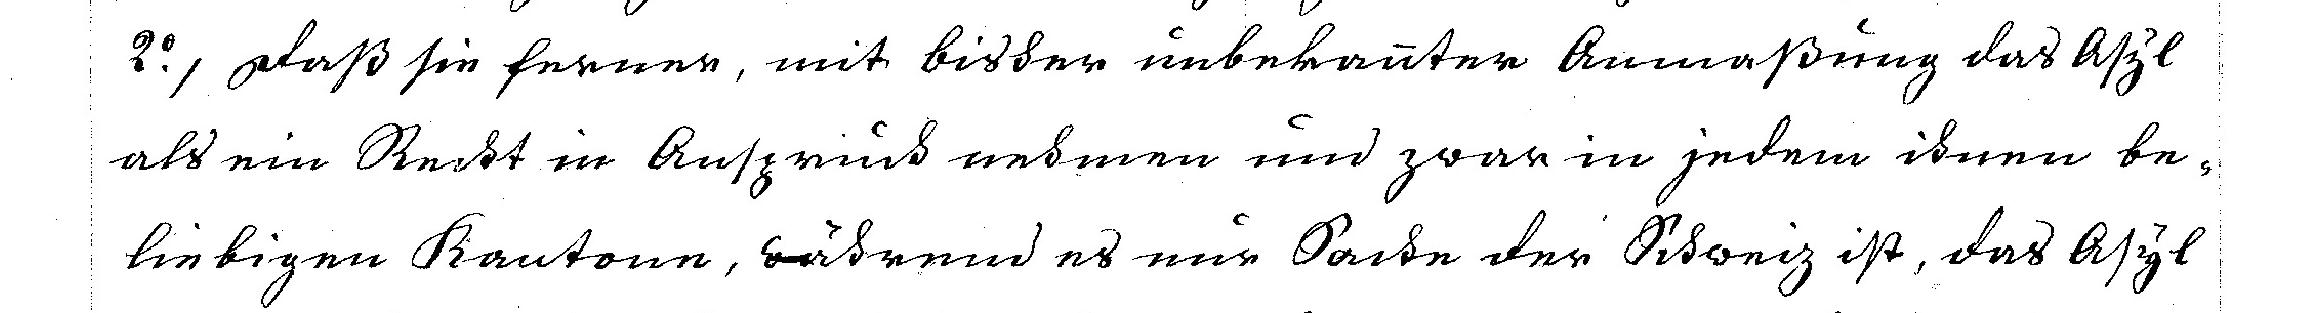 2º, Daß sie ferner, mit bisher unbekan̅ter Anmaßung das Asÿl
als ein Recht in Anspruch nehmen und zwar in jedem ihnen be-
liebigen Kantone, während es nur Sache der Schweiz ist, das Asÿl